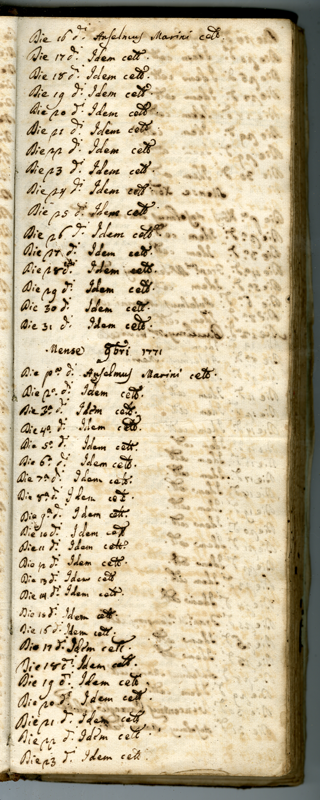 Die 16 d.i Anselmus Marini cett.
Die 17 d.i Idem cett.
Die 18 d.i Idem cett.
Die 19 d.i Idem cett.
Die 20 d.i Idem cett.
Die 21 d.i Idem cett.
Die 22 d.i Idem cett.
Die 23 d.i Idem cett.
Die 24 d.i Idem cett.
Die 25 d.i Idem cett.
Die 26 d.i Idem cett.
Die 27 d.i Idem cett.
Die 28 d.i Idem cett.
Die 29 d.i Idem cett.
Die 30 d.i Idem cett.
Die 31 d.i Idem cett.
Mense 9bri 1771
Die p.a d.i Anselmus Marini cett.
Die 2.a d.i Idem cett.
Die 3.a d.i Idem cett.
Die 4.a d.i Idem cett.
Die 5.a d.i Idem cett.
Die 6.a d.i Idem cett.
Die 7.a d.i Idem cett.
Die 8.a d.i Idem cett.
Die 9.a d.i Idem cett.
Die 10 d.i Idem cett.
Die 11 d.i Idem cett.
Die 12 d.i Idem cett.
Die 13 d.i Idem cett.
Die 14 d.i Idem cett.
Die 15 d.i Idem cett.
Die 16 d.i Idem cett.
Die 17 d.i Idem cett.
Die 18 d.i Idem cett.
Die 19 d.i Idem cett.
Die 20 d.i Idem cett.
Die 21 d.i Idem cett.
Die 22 d.i Idem cett.
Die 23 d.i Idem cett.